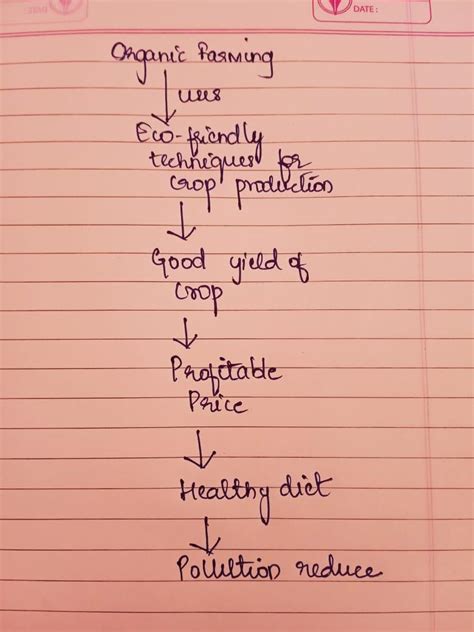 DATE :
Organic farming
uses
Eco-friendly
techniques for
crop production
Good yield of
crop
Profitable
Price
Healthy diet
Pollution reduce